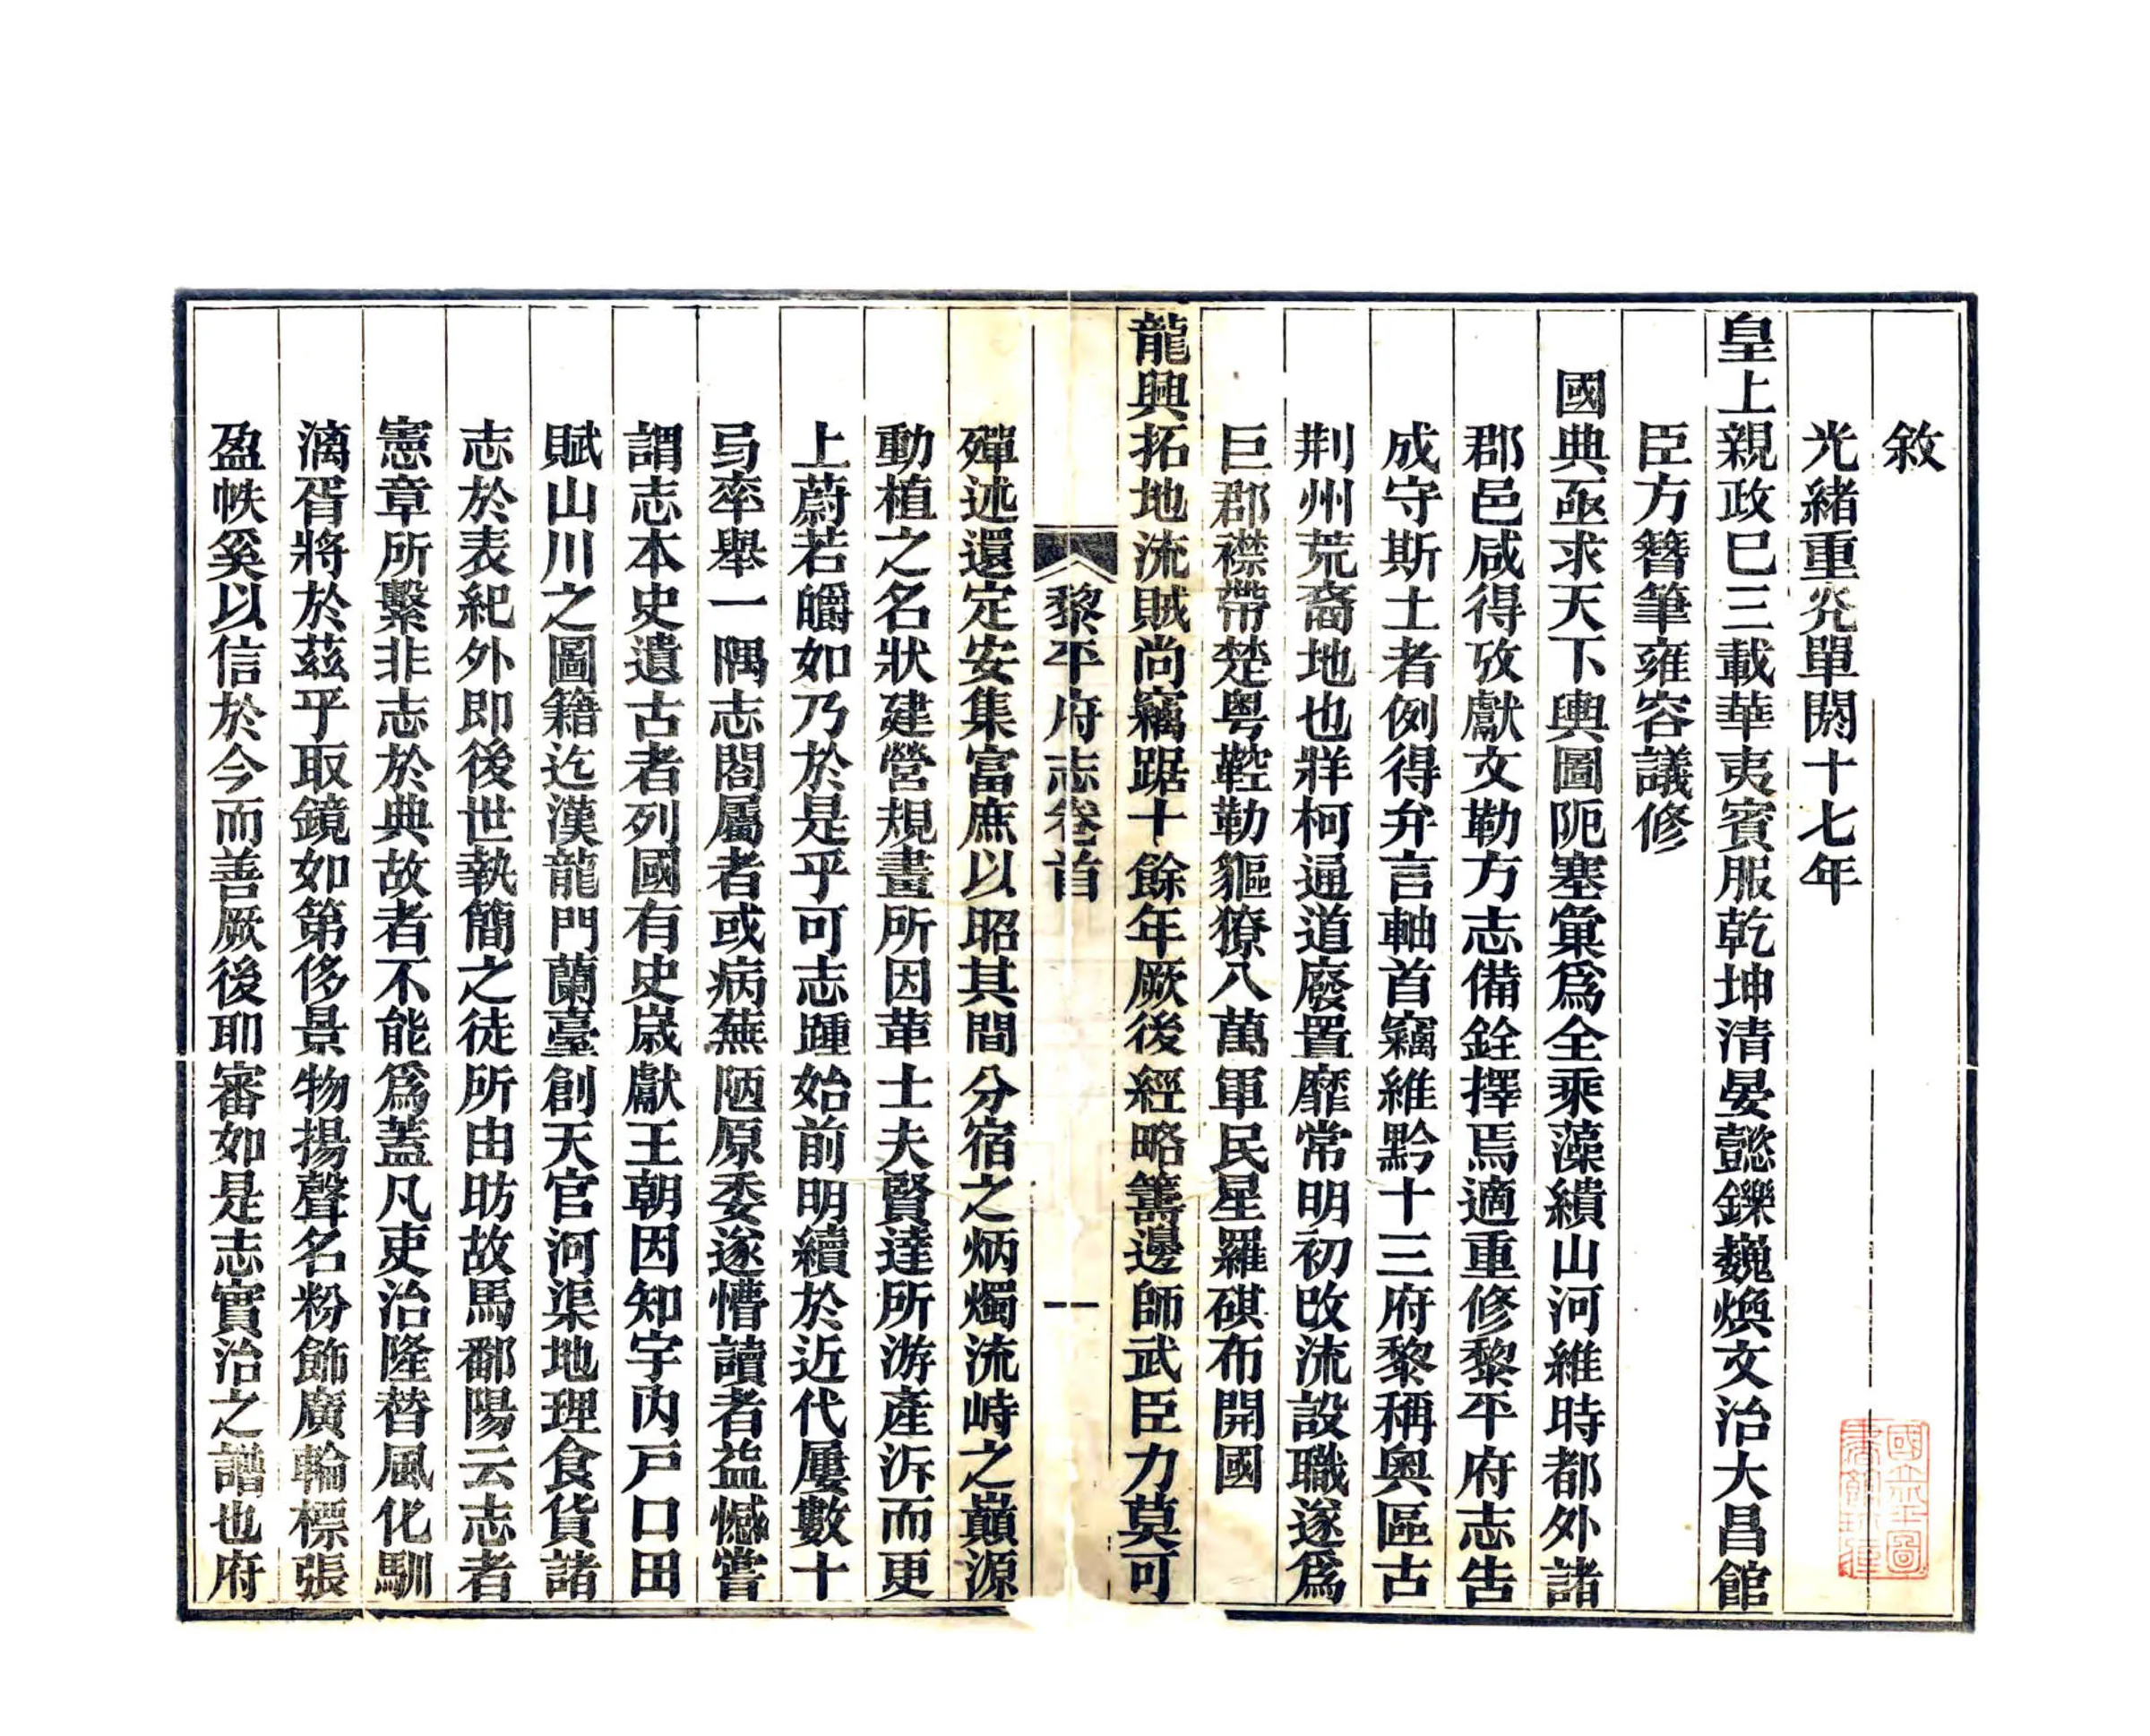 敘
光緒重光單閼十七年
皇上親政已三載華夷賓服乾坤清晏懿鑠巍煥文治大昌館
臣方簪筆雍容議修
國典亟求天下輿圖阨塞彙爲全乘藻繢山河維時都外諸
郡邑咸得攷獻文勒方志備銓擇焉適重修黎平府志告
成守斯土者例得弁言軸首竊維黔十三府黎稱奧區古
荆州荒裔地也牂柯通道廢置靡常明初改流設職遂爲
巨郡襟帶楚粵鞚勒貙獠八萬軍民星羅碁布開國
龍興拓地流賊尚竊踞十餘年厥後經略籌邊師武臣力莫可
殫述還定安集富庶以昭其間分宿之炳燭流峙之巔源
動植之名狀建營規畫所因革士夫賢達所游產泝而更
上蔚若皭如乃於是乎可志踵始前明續於近代屢數十
弓率舉一隅志閤屬者或病蕪陋原委遂懵讀者益憾嘗
謂志本史遺古者列國有史歲獻王朝因知宇內戶口田
賦山川之圖籍迄漢龍門蘭臺創天官河渠地理食貨諸
志於表紀外即後世執簡之徒所由昉故馬鄱陽云志者
憲章所繫非志於典故者不能爲蓋凡吏治隆替風化馴
漓胥將於茲乎取鏡如第侈景物揚聲名粉飾廣輪標張
盈帙奚以信於今而善厥後耶審如是志實治之譜也府
黎平府志卷首
一